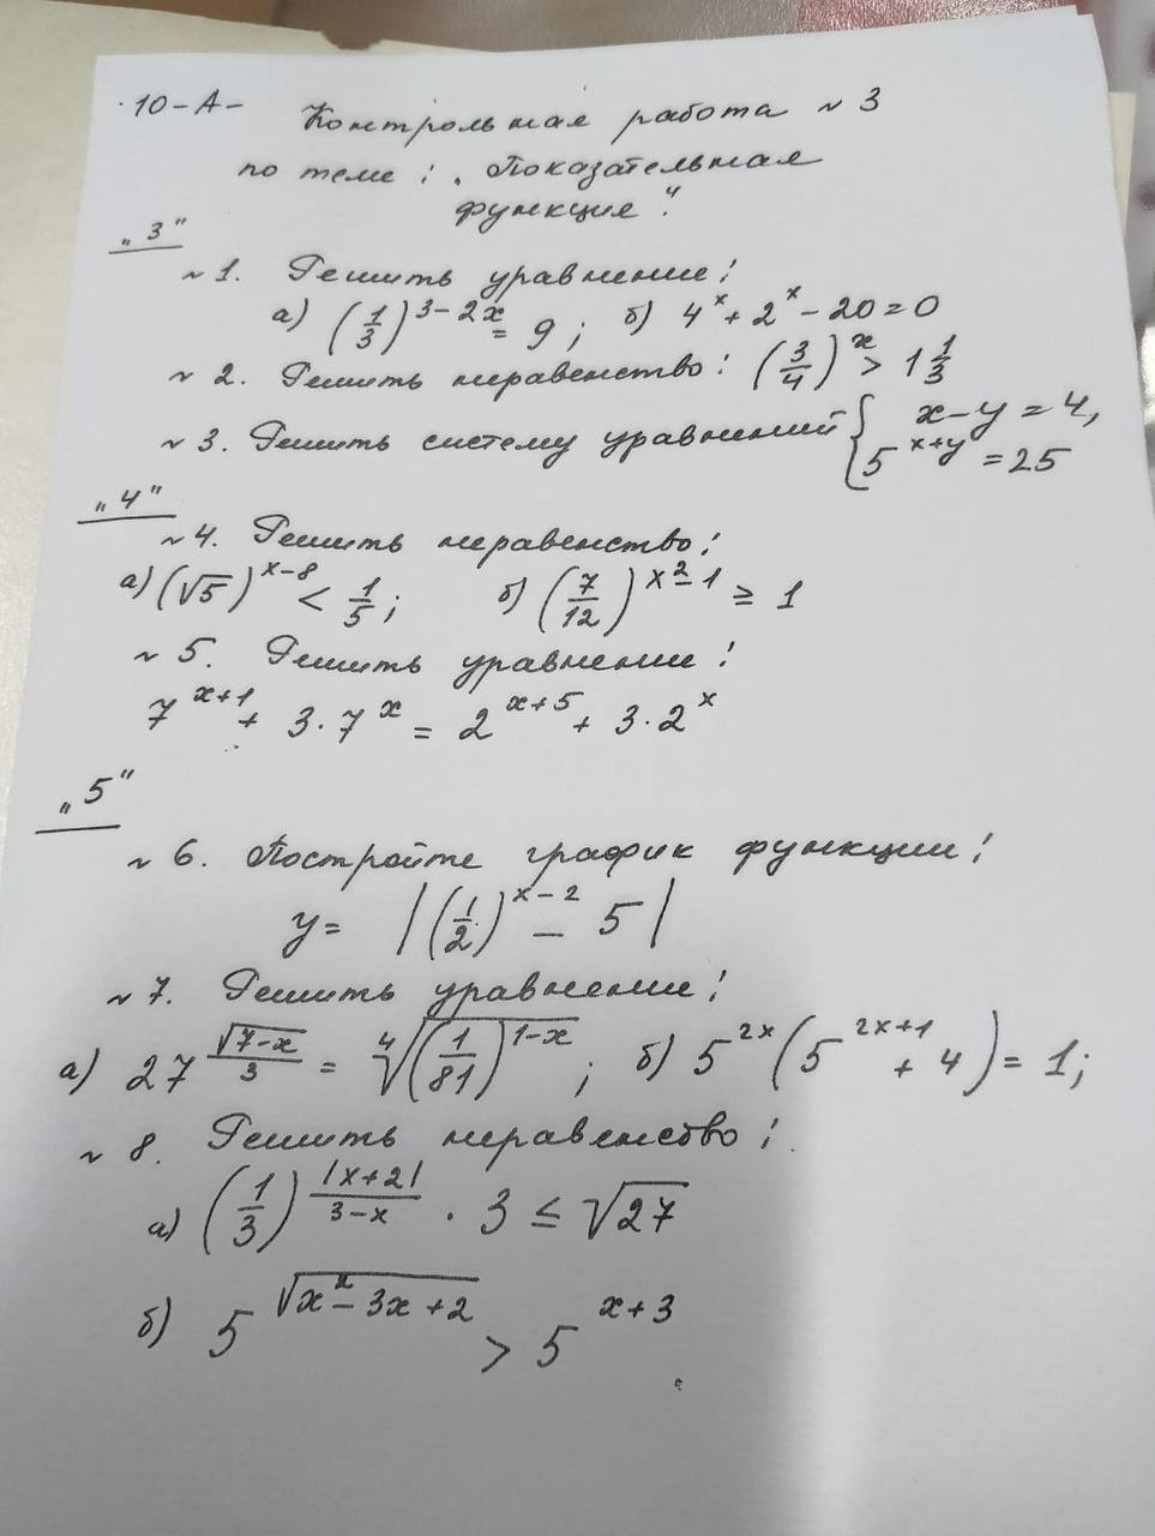 10-А- Контрольная работа № 3
по теме: „Показательная
функция".
„3"
№ 1. Решить уравнение:
а) (1/3)^(3-2x) = 9; б) 4^x + 2^x - 20 = 0
№ 2. Решить неравенство: (3/4)^x > 1 1/3
№ 3. Решить систему уравнений { x-y=4,
5^(x+y) = 25
„4"
№ 4. Решить неравенство:
а) (√5)^(x-8) < 1/5; б) (7/12)^(x^2-1) ≥ 1
№ 5. Решить уравнение:
7^(x+1) + 3·7^x = 2^(x+5) + 3·2^x
„5"
№ 6. Постройте график функции:
y = |(1/2)^(x-2) - 5|
№ 7. Решить уравнение:
а) 27^(√(7-x)/3) = ⁴√((1/81)^(1-x)); б) 5^(2x) (5^(2x+1) + 4) = 1;
№ 8. Решить неравенство:
а) (1/3)^(|x+2|/(3-x)) · 3 ≤ √27
б) 5^(√(x^2-3x+2)) > 5^(x+3)